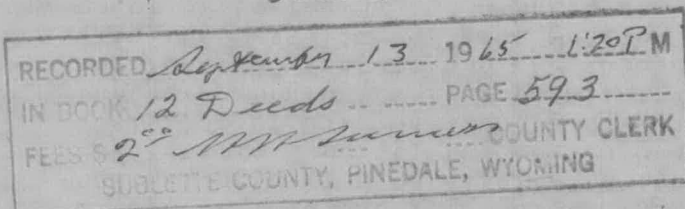 RECORDED September 13 1965 1:20 P M
IN BOOK 12 Deeds PAGE 593
FEES $ 2 00 COUNTY CLERK
SUBLETTE COUNTY, PINEDALE, WYOMING